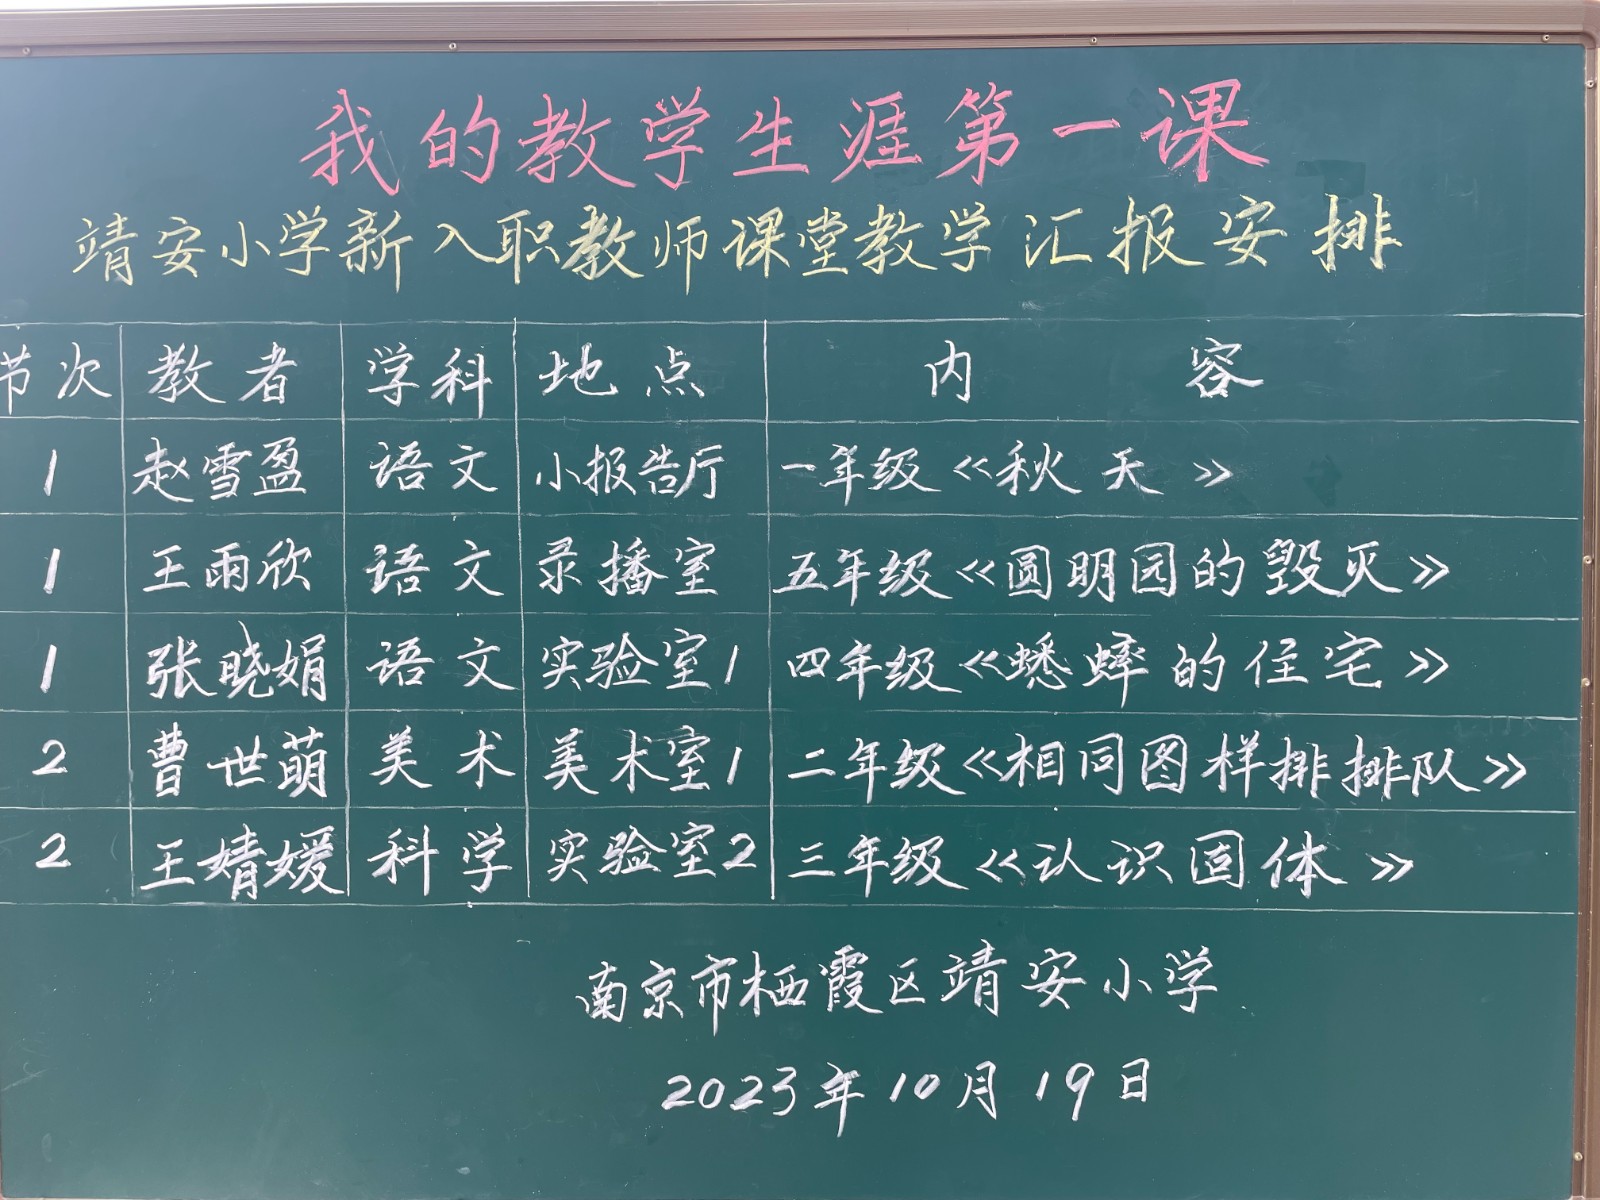 我的教学生涯第一课
靖安小学新入职教师课堂教学汇报安排
节次 教者 学科 地点 内容
1 赵雪盈 语文 小报告厅 一年级《秋天》
1 王雨欣 语文 录播室 五年级《圆明园的毁灭》
1 张晓娟 语文 实验室1 四年级《蟋蟀的住宅》
2 曹世萌 美术 美术室1 二年级《相同图样排排队》
2 王婧媛 科学 实验室2 三年级《认识固体》
南京市栖霞区靖安小学
2023年10月19日